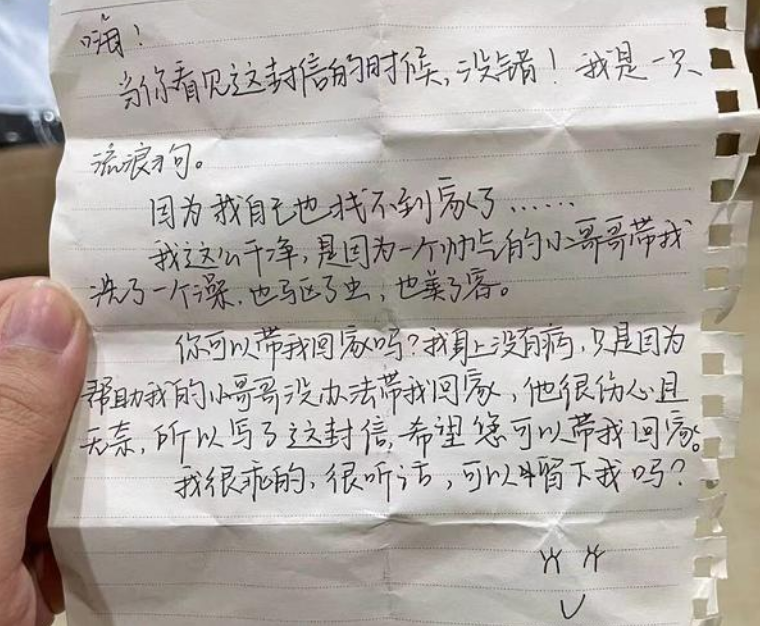 嗨!
当你看见这封信的时候,没错!我是一只
流浪狗。
因为我自己也找不到家了……
我这么干净,是因为一个帅气的小哥哥带我
洗了一个澡,也驱了虫,也美了容。
你可以带我回家吗?我身上没有病,只是因为
帮助我的小哥哥没办法带我回家,他很伤心且
无奈,所以写了这封信,希望您可以带我回家。
我很乖的,很听话,可以留下我吗?